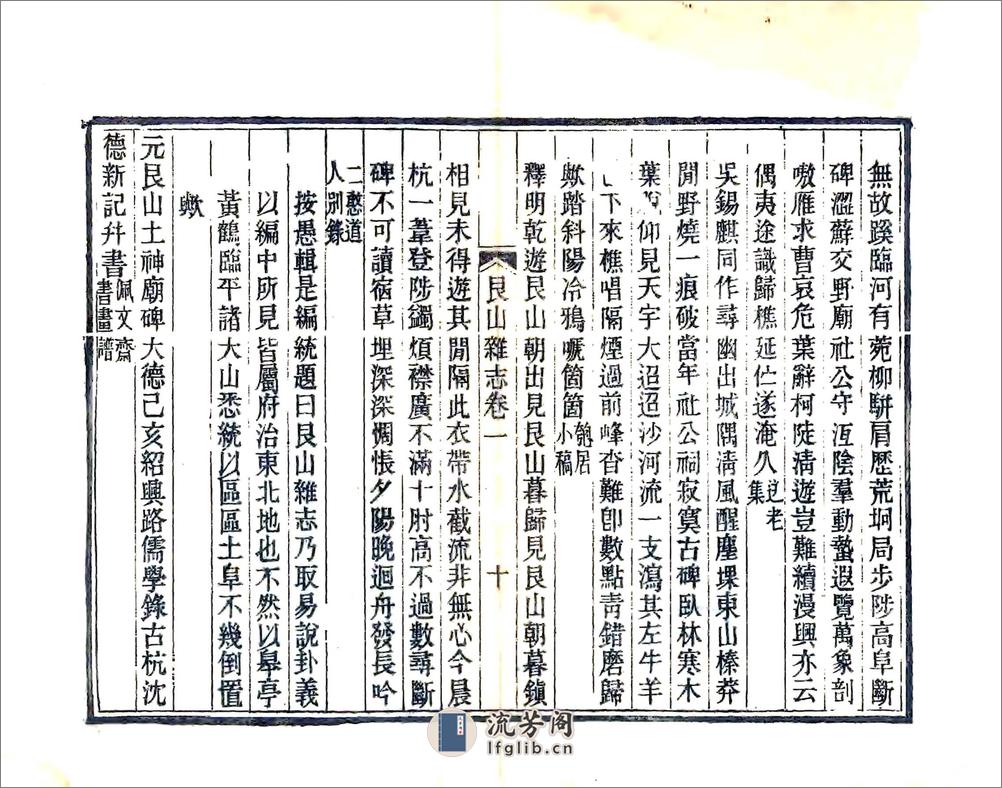 無故蹊臨河有菀柳駢肩歷荒坰局步陟高阜斷
碑澀蘚交野廟社公守沍陰羣動蟄遐覽萬象剖
嗷雁求曹哀危葉辭柯陡淸遊豈難續漫興亦云
偶夷途識歸樵延伫遂淹久老
集
吳錫麒同作尋幽出城隅淸風醒塵堁東山榛莽
閒野燒一痕破當年社公祠寂寞古碑臥林寒木
葉仰見天宇大迢迢沙河流一支瀉其左牛羊
下來樵唱隔煙過前峰杳難卽數點靑錯磨歸
歟踏斜陽冷鴉嚥箇箇匏居
小稿
釋明乾遊艮山朝出見艮山暮歸見艮山朝暮鎭
艮山雜志卷一
十
相見未得遊其閒隔此衣帶水截流非無心今晨
杭一葦登陟蠲煩襟廣不滿十肘高不過數尋斷
碑不可讀宿草埋深深惆悵夕陽晚迴舟發長吟
二憨道
人別錄
按愚輯是編統題曰艮山雜志乃取易說卦義
以編中所見皆屬府治東北地也不然以皋亭
黃鶴臨平諸大山悉統以區區土阜不幾倒置
歟
元艮山土神廟碑大德己亥紹興路儒學錄古杭沈
德新記幷書佩文齋
書畫譜
流芳阁
lfglib.cn